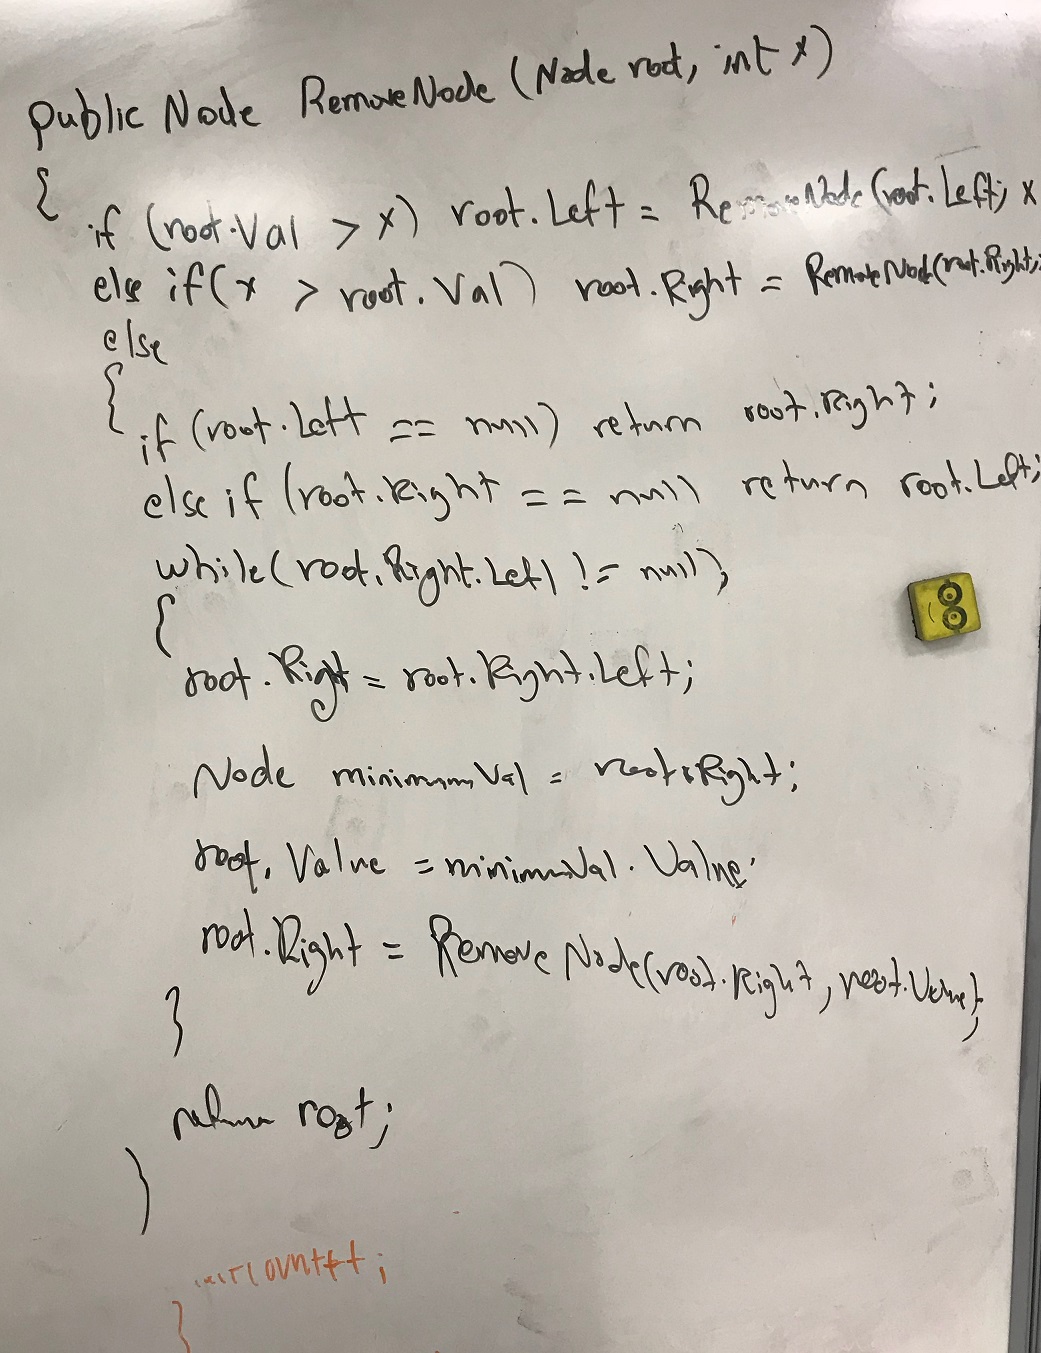 public Node RemoveNode (Node root, int x)
{
if (root.Val > x) root.Left = RemoveNode(root.Left, x
else if(x > root.Val) root.Right = RemoveNode(root.Right,
else
{
if (root.Left == null) return root.Right;
else if (root.Right == null return root.Left;
while(root.Right.Left != null);
{
root.Right = root.Right.Left;
Node minimumVal = root.Right;
root.Value = minimumVal.Value;
root.Right = RemoveNode(root.Right, root.Value);
}
return root;
}
count++;
}
8